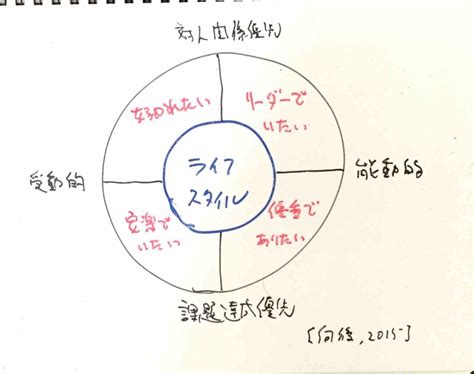 対人関係優先
好かれたい
リーダーで
いたい
受動的
ライフ
スタイル
能動的
安楽で
いたい
優秀で
ありたい
課題達成優先
[向後, 2015]